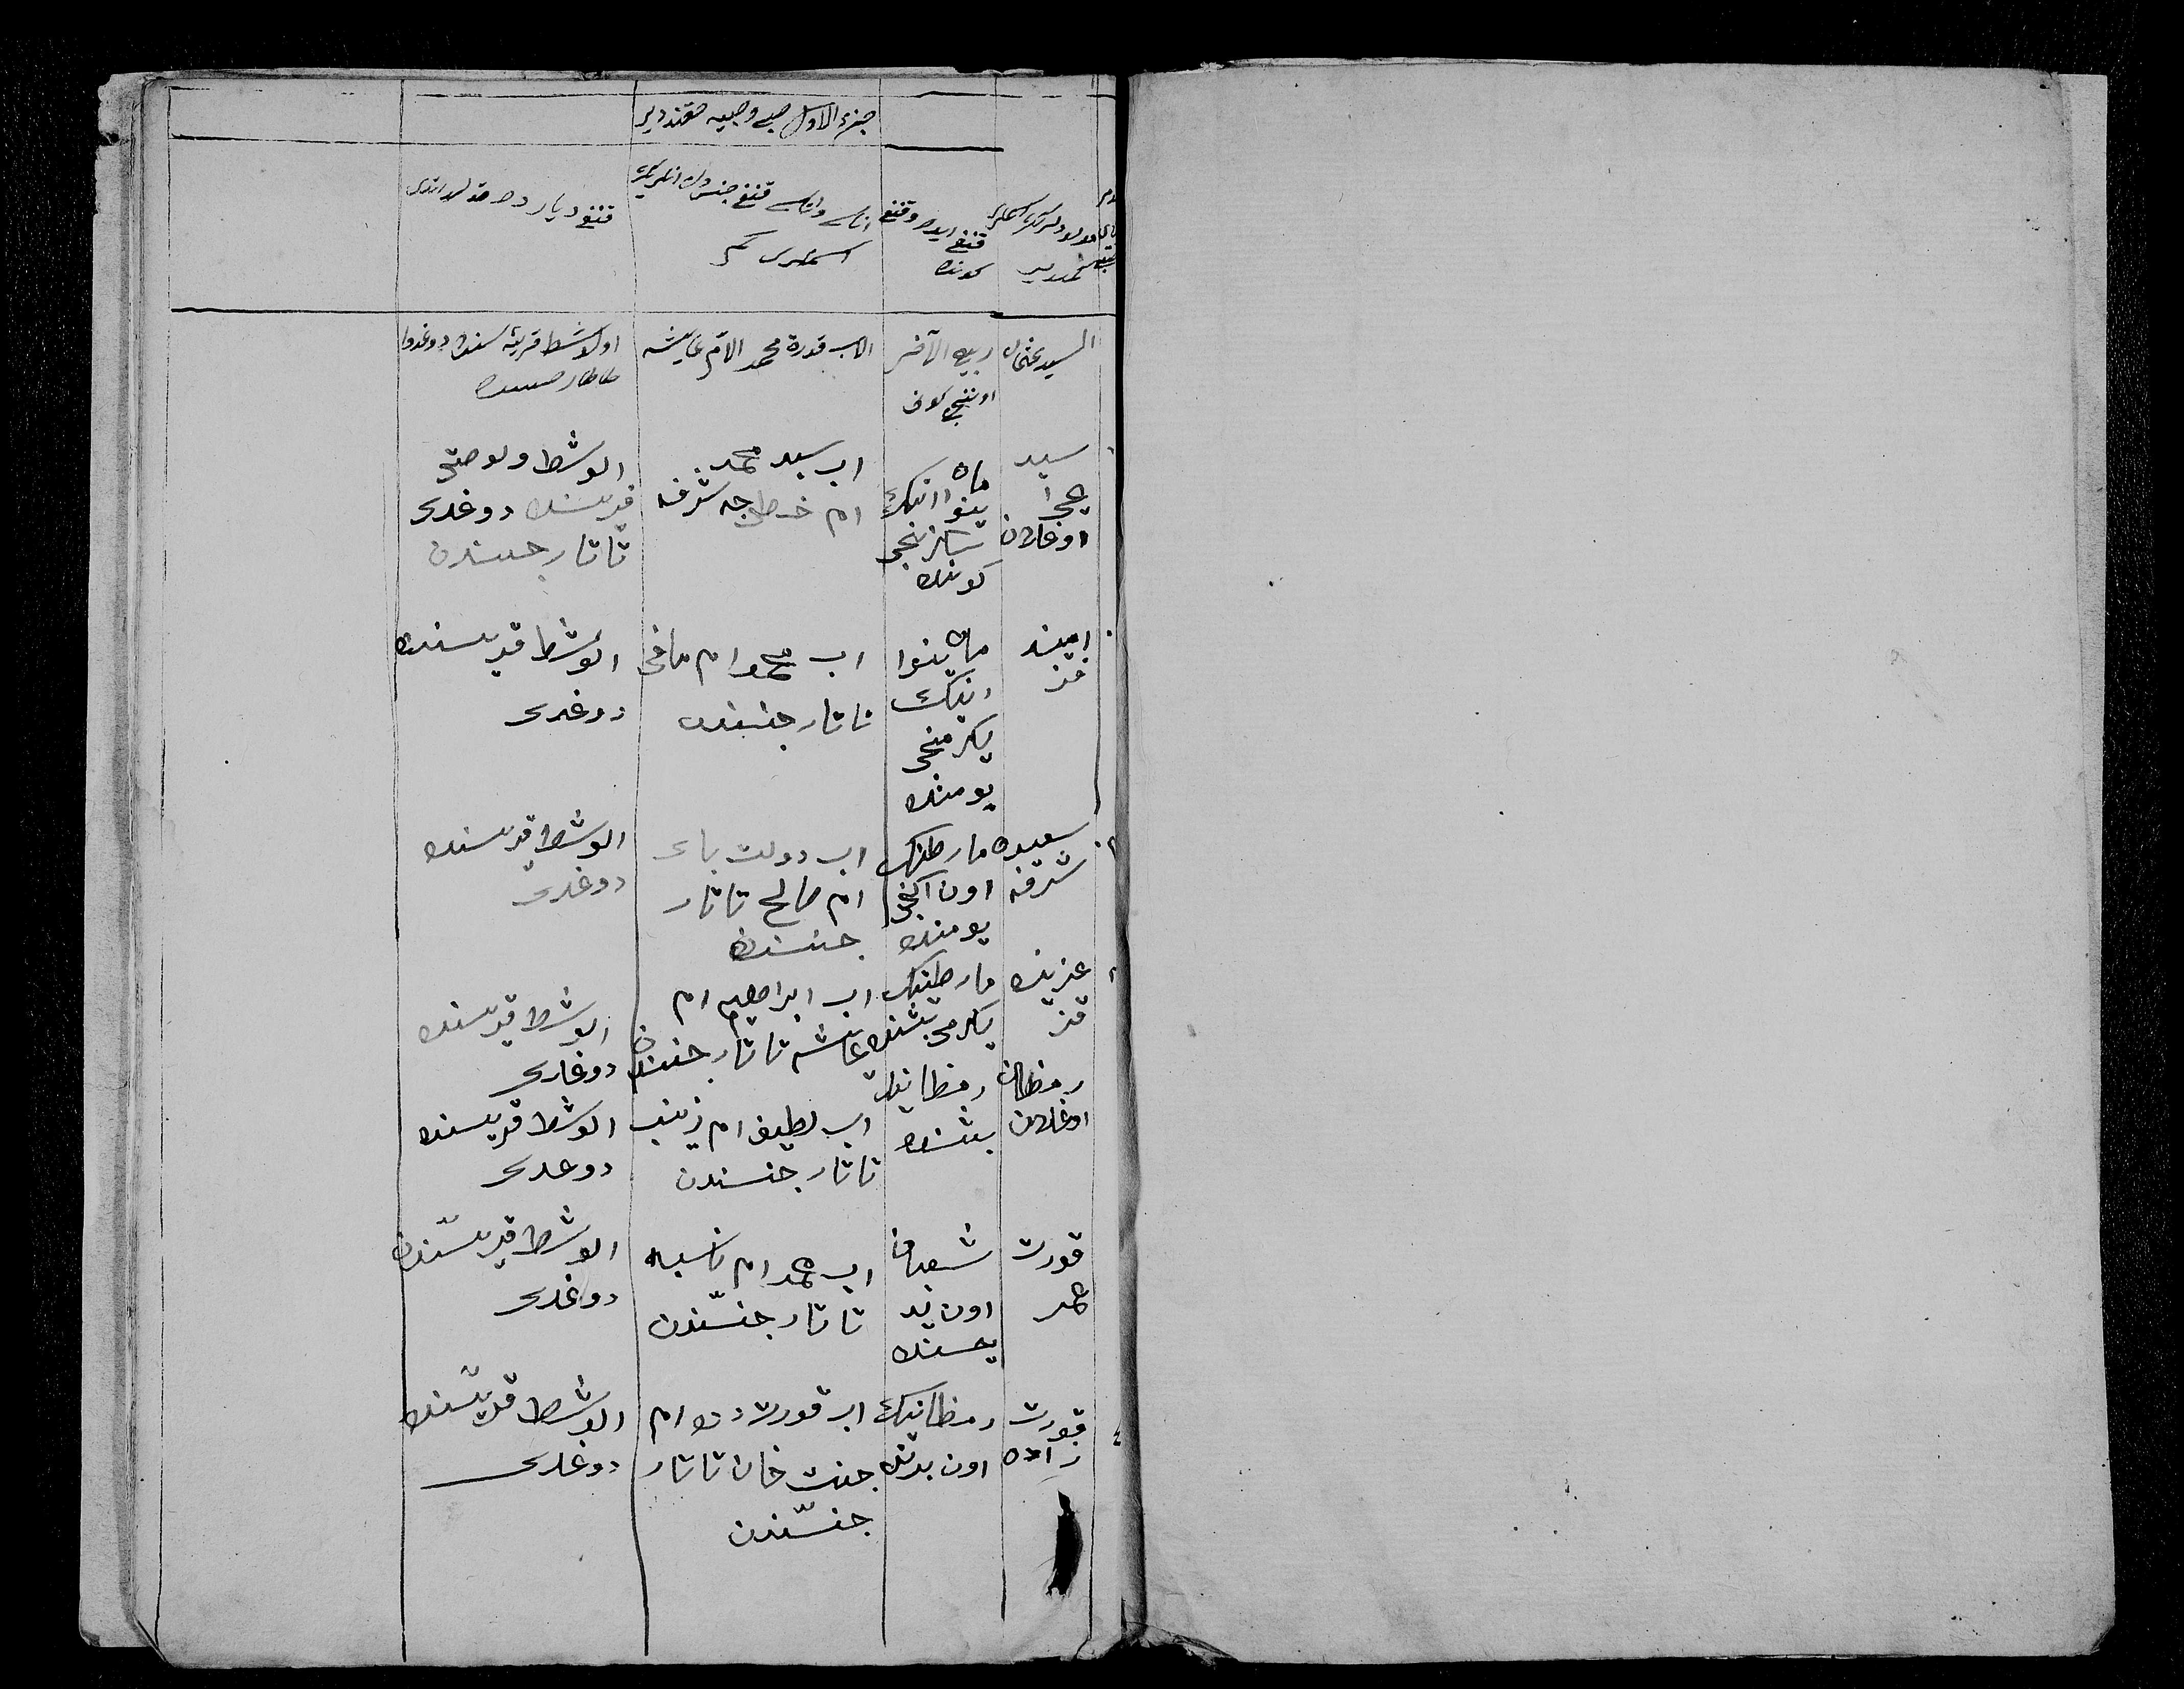 جزء الاول صبى وصبيه حقنده دير
قنغى ايده وقنغى
كونده
اناسى واتاسى قنغى جنس دن انلرنك
اسملرى كم
قنغى ديارده متولد اولدى
السيد عثمان
ربيع الآخر
اوننجى كونى
الاب قورة محمد الام عايشه
اولاشط قريه سنده دوغدى
طاطار جنسنده
سيد
يحيى
اوغلان
ماه
ينوارنك
سكزنجى
كونده
اب سيد محمد
ام خطيجه شرفه
الوشط ولوصتى
قريه سنده دوغدى
تاتار جنسندن
امينه
قز
ماه ينوا
رنك
يكرمنجى
يومنده
اب محمد ام صافى
تاتار جنسندن
الوشط قريه سنده
دوغدى
سعيده
شرفه
مارطنك
اون اكنجى
يومنده
اب دولت باى
ام صالح تاتار
جنسنده
الوشط قريه سنده
دوغدى
عزيزه
قز
مارطنك
يكرمى بشنده
اب ابراهيم ام
عائشه تاتار جنسندن
الوشط قريه سنده
دوغدى
رمظان
اوغلان
رمظاننك
بشنده
اب لطيف ام زينب
تاتار جنسندن
الوشط قريه سنده
دوغدى
قورت
عمر
شعبان
اون يد
يسنده
اب محمد ام ناسبه
تاتار جنسندن
الوشط قريه سندن
دوغدى
قورت
زاده
رمظاننك
اون برنده
اب قورت دده ام
جنت خان تاتار
جنسندن
الوشط قريه سنده
دوغدى